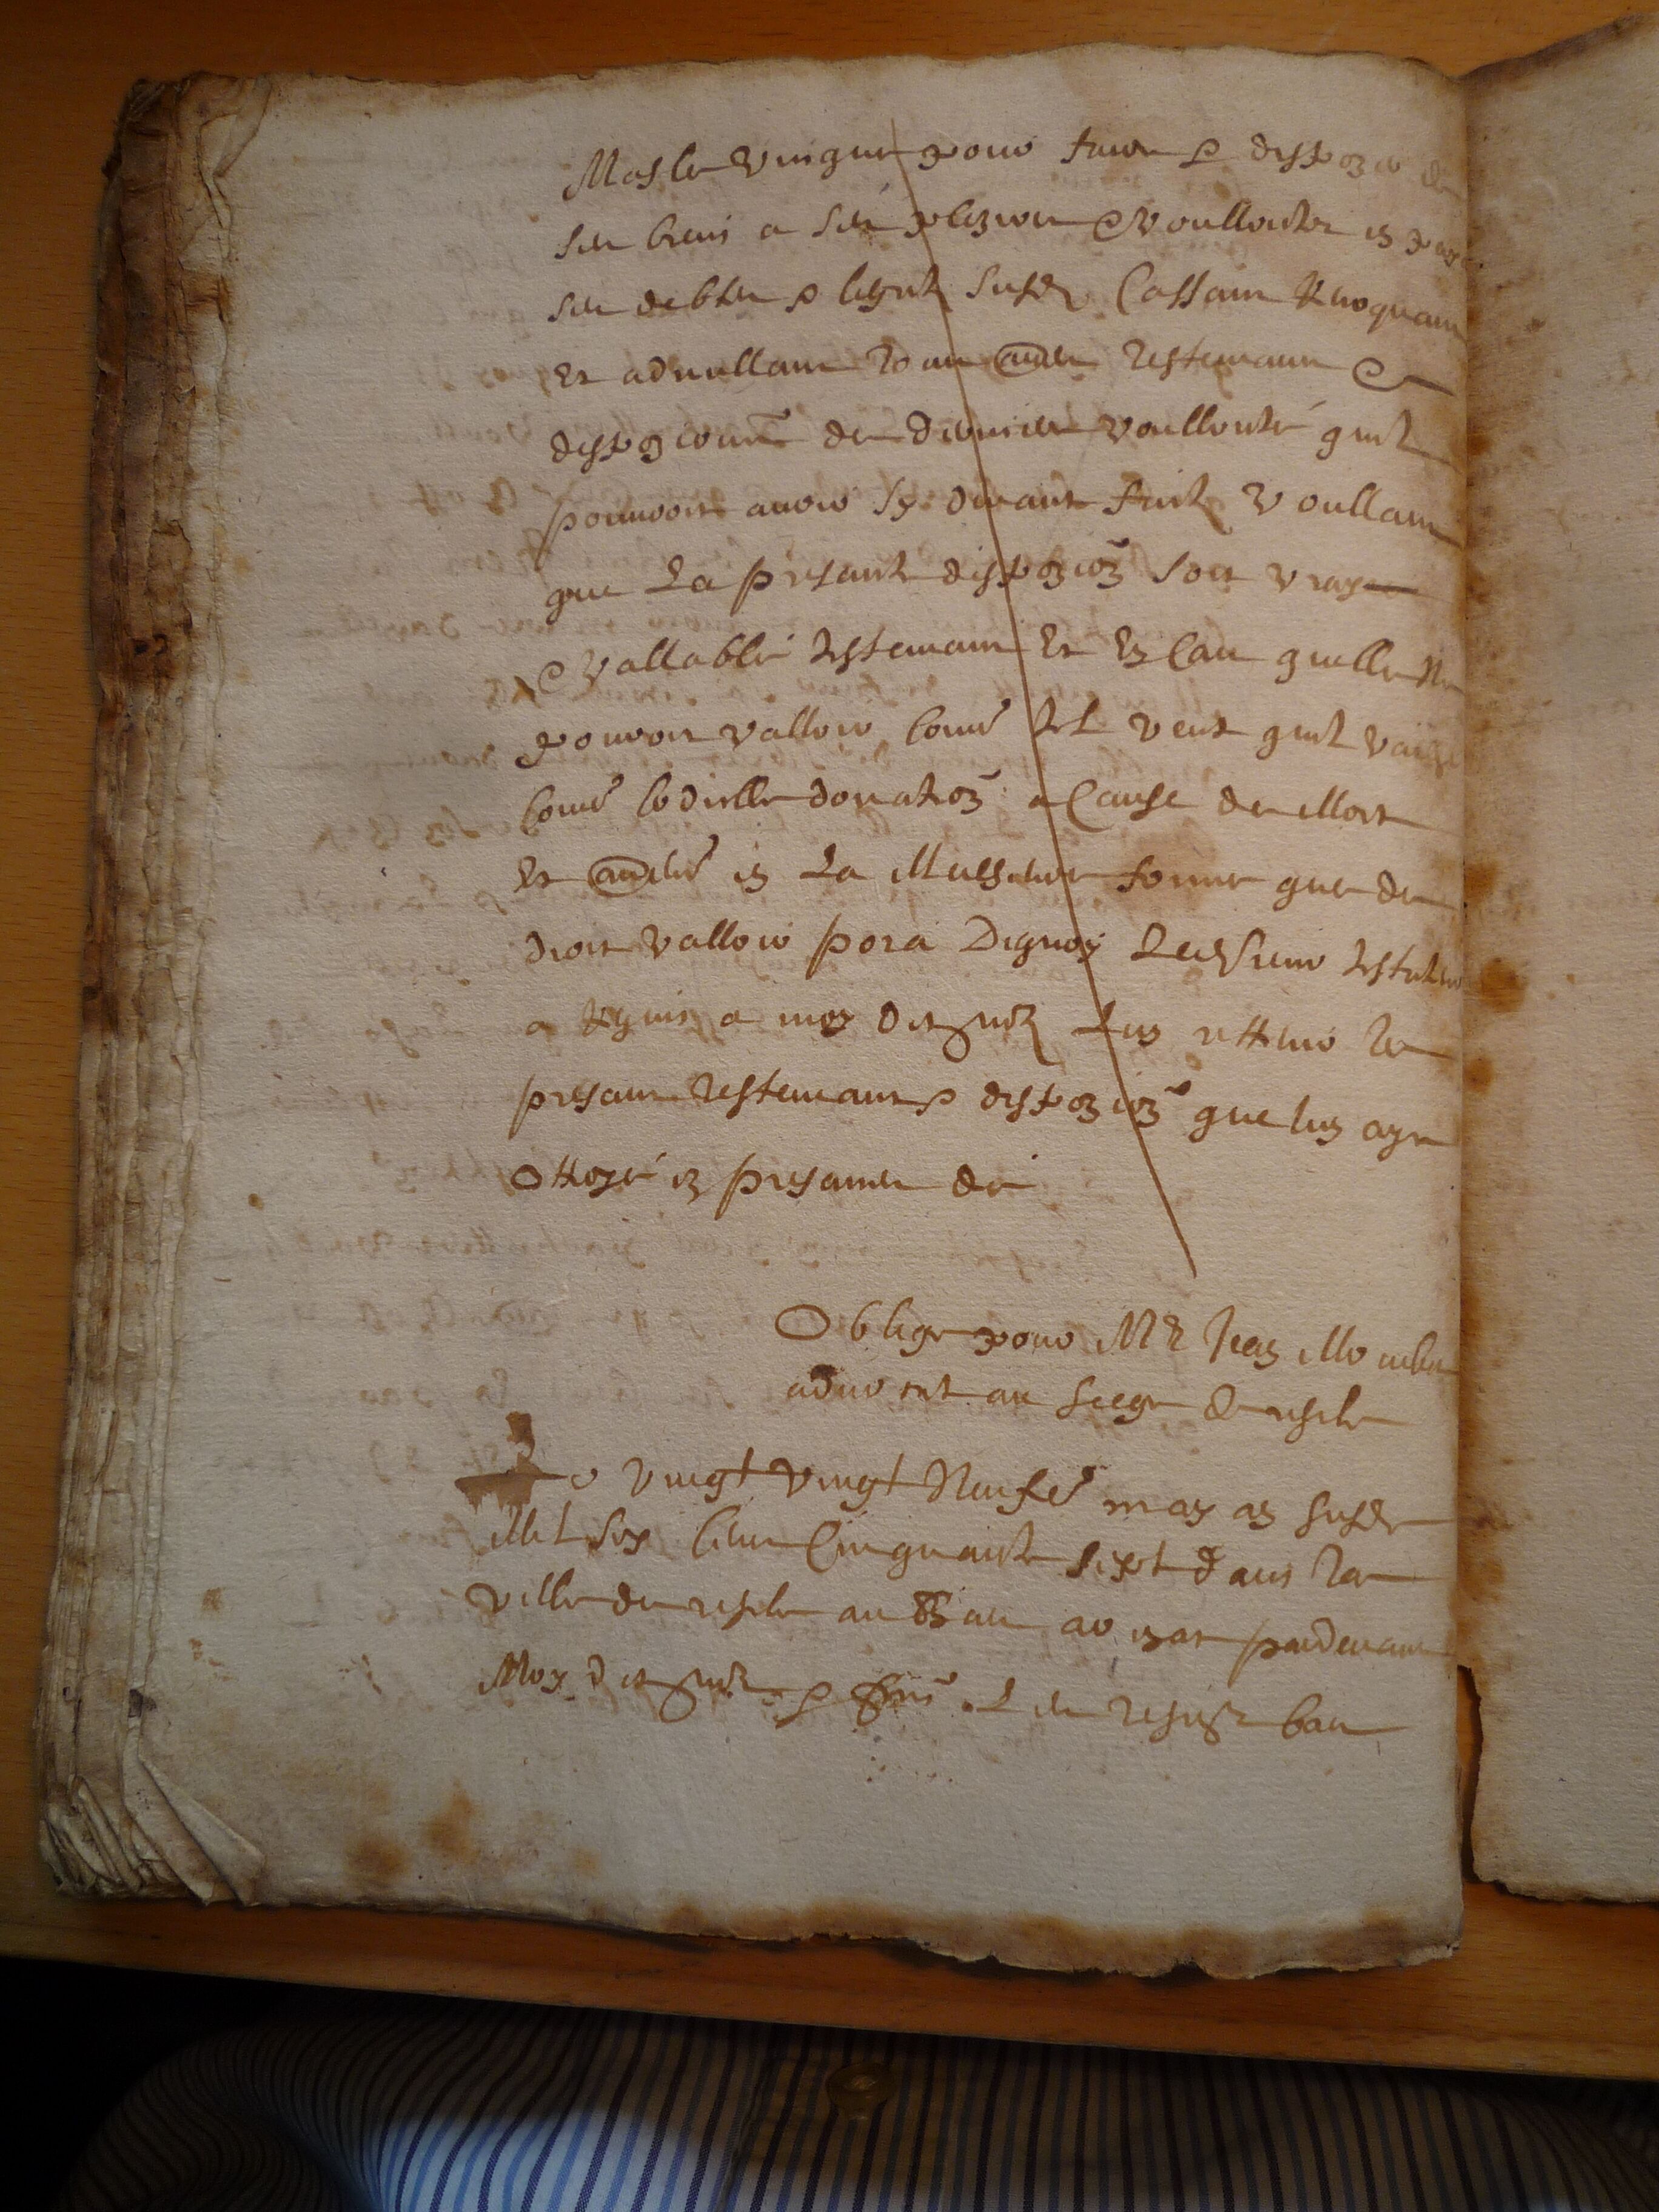 Masle vingut pour faire & dispozer de
ses biens a ses plezirs & voullontes en paya
ses debtes & legatz susd Cassant Revoquant
Et adnullant tous autres testemant &
dispozeconns de derniere voullonté quil
pouvoit avoir sy devant faict Voullant
que La presante dispozion soit vray
& vallable testemant Et En Cas quelle ne
pouvoit valloir come tel veut quil vaille
come codicille donation a Cause de Mort
Et autre en La Meilhure forme que de
droit valloir pora Dequoy Ledsieur testateur
a Requis a moy dit notre Luy retteni le
presant testemant & dispozion que luy aye
ottroyé en presance de
Oblige pour Me Jean
advocat au siege de
Le vingt vingt Neufe may an susd
Mil six cens Cinquante sept dans la
ville de au bas pardevant
Moy dit notre & Les tesmoingz bas